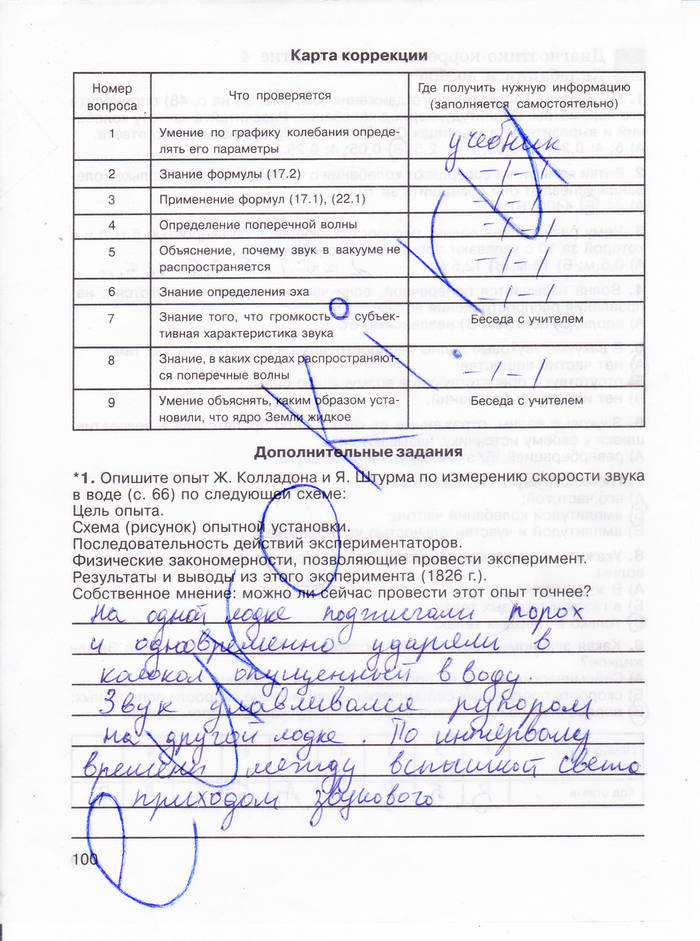 Карта коррекции
Номер вопроса
Что проверяется
Где получить нужную информацию (заполняется самостоятельно)
1
Умение по графику колебания опреде-
лять его параметры
учебник
2
Знание формулы (17.2)
-1-1
3
Применение формул (17.1), (22.1)
-1-1
4
Определение поперечной волны
-1-1
5
Объяснение, почему звук в вакууме не
распространяется
-1-1
6
Знание определения эха
-1-1
7
Знание того, что громкость – субъек-
тивная характеристика звука
Беседа с учителем
8
Знание, в каких средах распространяют-
ся поперечные волны
-1-1
9
Умение объяснять, каким образом уста-
новили, что ядро Земли жидкое
Беседа с учителем
Дополнительные задания
*1. Опишите опыт Ж. Колладона и Я. Штурма по измерению скорости звука
в воде (с. 66) по следующей схеме:
Цель опыта.
Схема (рисунок) опытной установки.
Последовательность действий экспериментаторов.
Физические закономерности, позволяющие провести эксперимент.
Результаты и выводы из этого эксперимента (1826 г.).
Собственное мнение: можно ли сейчас провести этот опыт точнее?
На одной лодке поджигали порох
и одновременно ударяли в
колокол опущенный в воду.
Звук улавливался рупором
на другой лодке. По интервалу
времени между вспышкой света
и приходом звукового
100